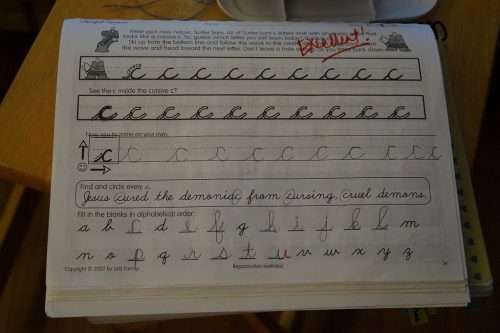 Meet your new helper, Surfer Sam. All of Surfer Sam's letters start with an
looks like a cursive c. So, guess which letter you will learn today?
Ski up from the bottom line and follow the wave to the
the wave and head toward the next letter. Don't leave a hole back down.
Excellent!
c c c c c c c c c c
See the c inside the cursive c?
c c c c c c c c c c
Now, you try some on your own.
c c c c c c c c c c c
Find and circle every c.
Jesus cured the demoniac from cursing, cruel demons.
Fill in the blanks in alphabetical order.
a b c d e f g h i j k l m
n o p q r s t u v w x y z
Copyright © 2002 by Letz Farmer
Reproduction restricted
34